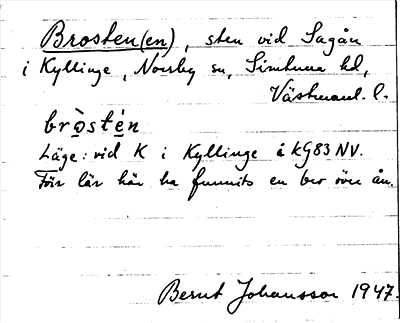 Brosten(en), sten vid Sagån
i Kyllinge, Nonby sn, Simtuna hd,
Västmanl. l.
brò̲sté̲n
Läge: vid K i Kyllinge å kG83 NV.
Förr lär här ha funnits en bro över ån.
Bernt Johansson 1947.